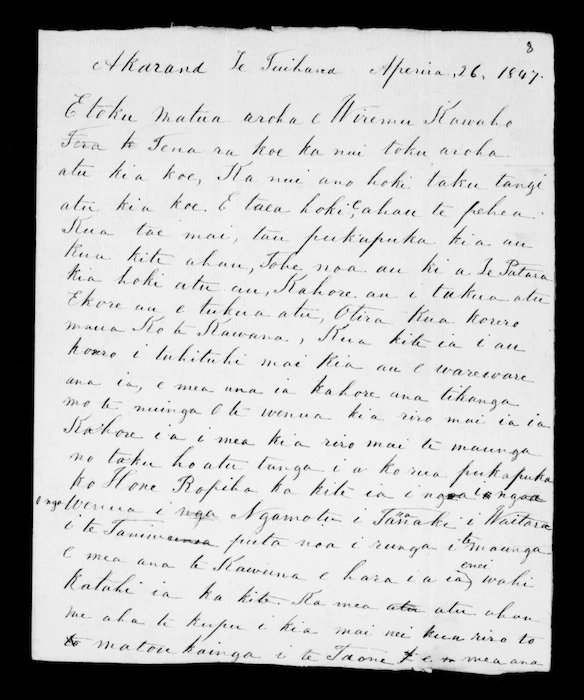 8
Akarand Te Tuihana Aperira, 26, 1847.
E toku Matua aroha e Wiremu Kawaho
Tena ra koe ka nui toku aroha
atu kia koe, Ka nui ano hoki taku tangi
atu kia koe. E taea hoki e ahau te pehea.
Kua tae mai, tau pukapuka kia au
kua kite ahau, Tohe noa au ki a Te Patara
kia hoki atu au, Kahore au i tukua atu
Ekore au e tukua atu, Otira Kua korero
maua Ko te Kawana, Kua kite ia i au
korero i tuhituhi mai Kia au e wareware
ana ia, e mea ana ia kahore ana tikanga
mo te nuinga O te wenua kia riro mai ia ia
Kahore ia i mea kia riro mai te maunga
no taku hoatu tanga i a korua pukapuka
ko Hone Ropiha ka kite ia i
o nga wenua i nga Ngamotu i Taranaki i Waitara
i te Taniwa puta noa i runga i te maunga
e mea ana te Kawana e hara i a ia enei wahi
Katahi ia ka kite. Ka mea atu atu ahau
me aha te kupu i kia mai nei kua riro to
matou kainga i te Taone e mea ana